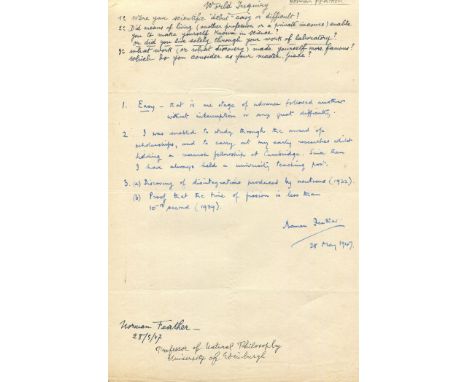 World Inquiry
NORMAN FEATHER
1º Were your scientific "début" easy or difficult?
2º Did means of living (another profession or a private incomes) enable
you to make yourself known in science?
Or did you live solely through your work of laboratory?
3º What work (or what discovery) made yourself more famous?
Which do you consider as your master-
1. Easy – that is one stage of advance followed another
without interruption or any great difficulty.
2. I was enabled to study through the award of
scholarships, and to carry out my early researches whilst
holding a research fellowship at Cambridge. Since then
I have always held a university teaching post.
3. (a) Discovery of disintegrations produced by neutrons (1932).
(b) Proof that the time of fission is less than
second (1939).
Norman Feather
28 May 1947.
Norman Feather –
28/5/47
Professor of Natural Philosophy
University of Edinburgh